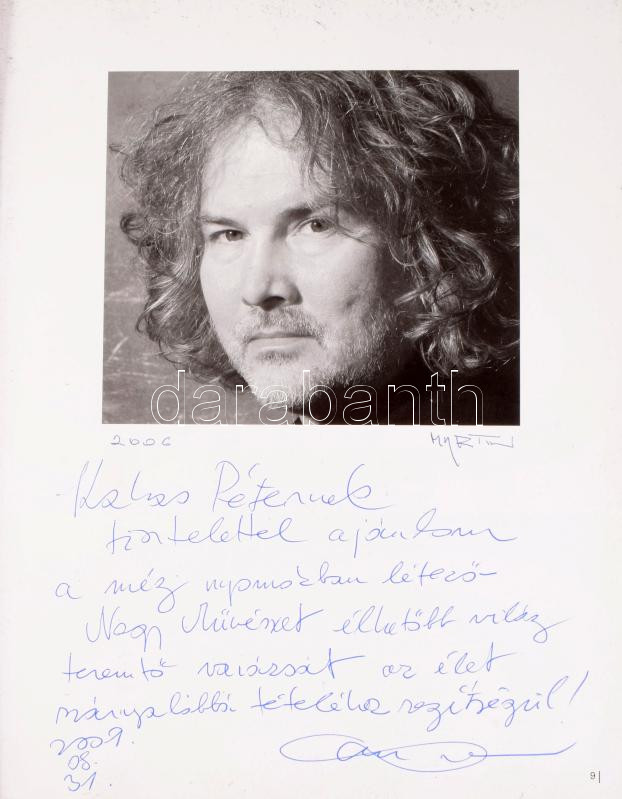 darabanth
2006 MARTIN
Kakas Péternek
tisztelettel ajánlom
a még nyomokban létező
Nagy Művészet élhetőbb világ
teremtő varázsát az élet
tételéhez segítségül!
2009.
08.
31.
9|